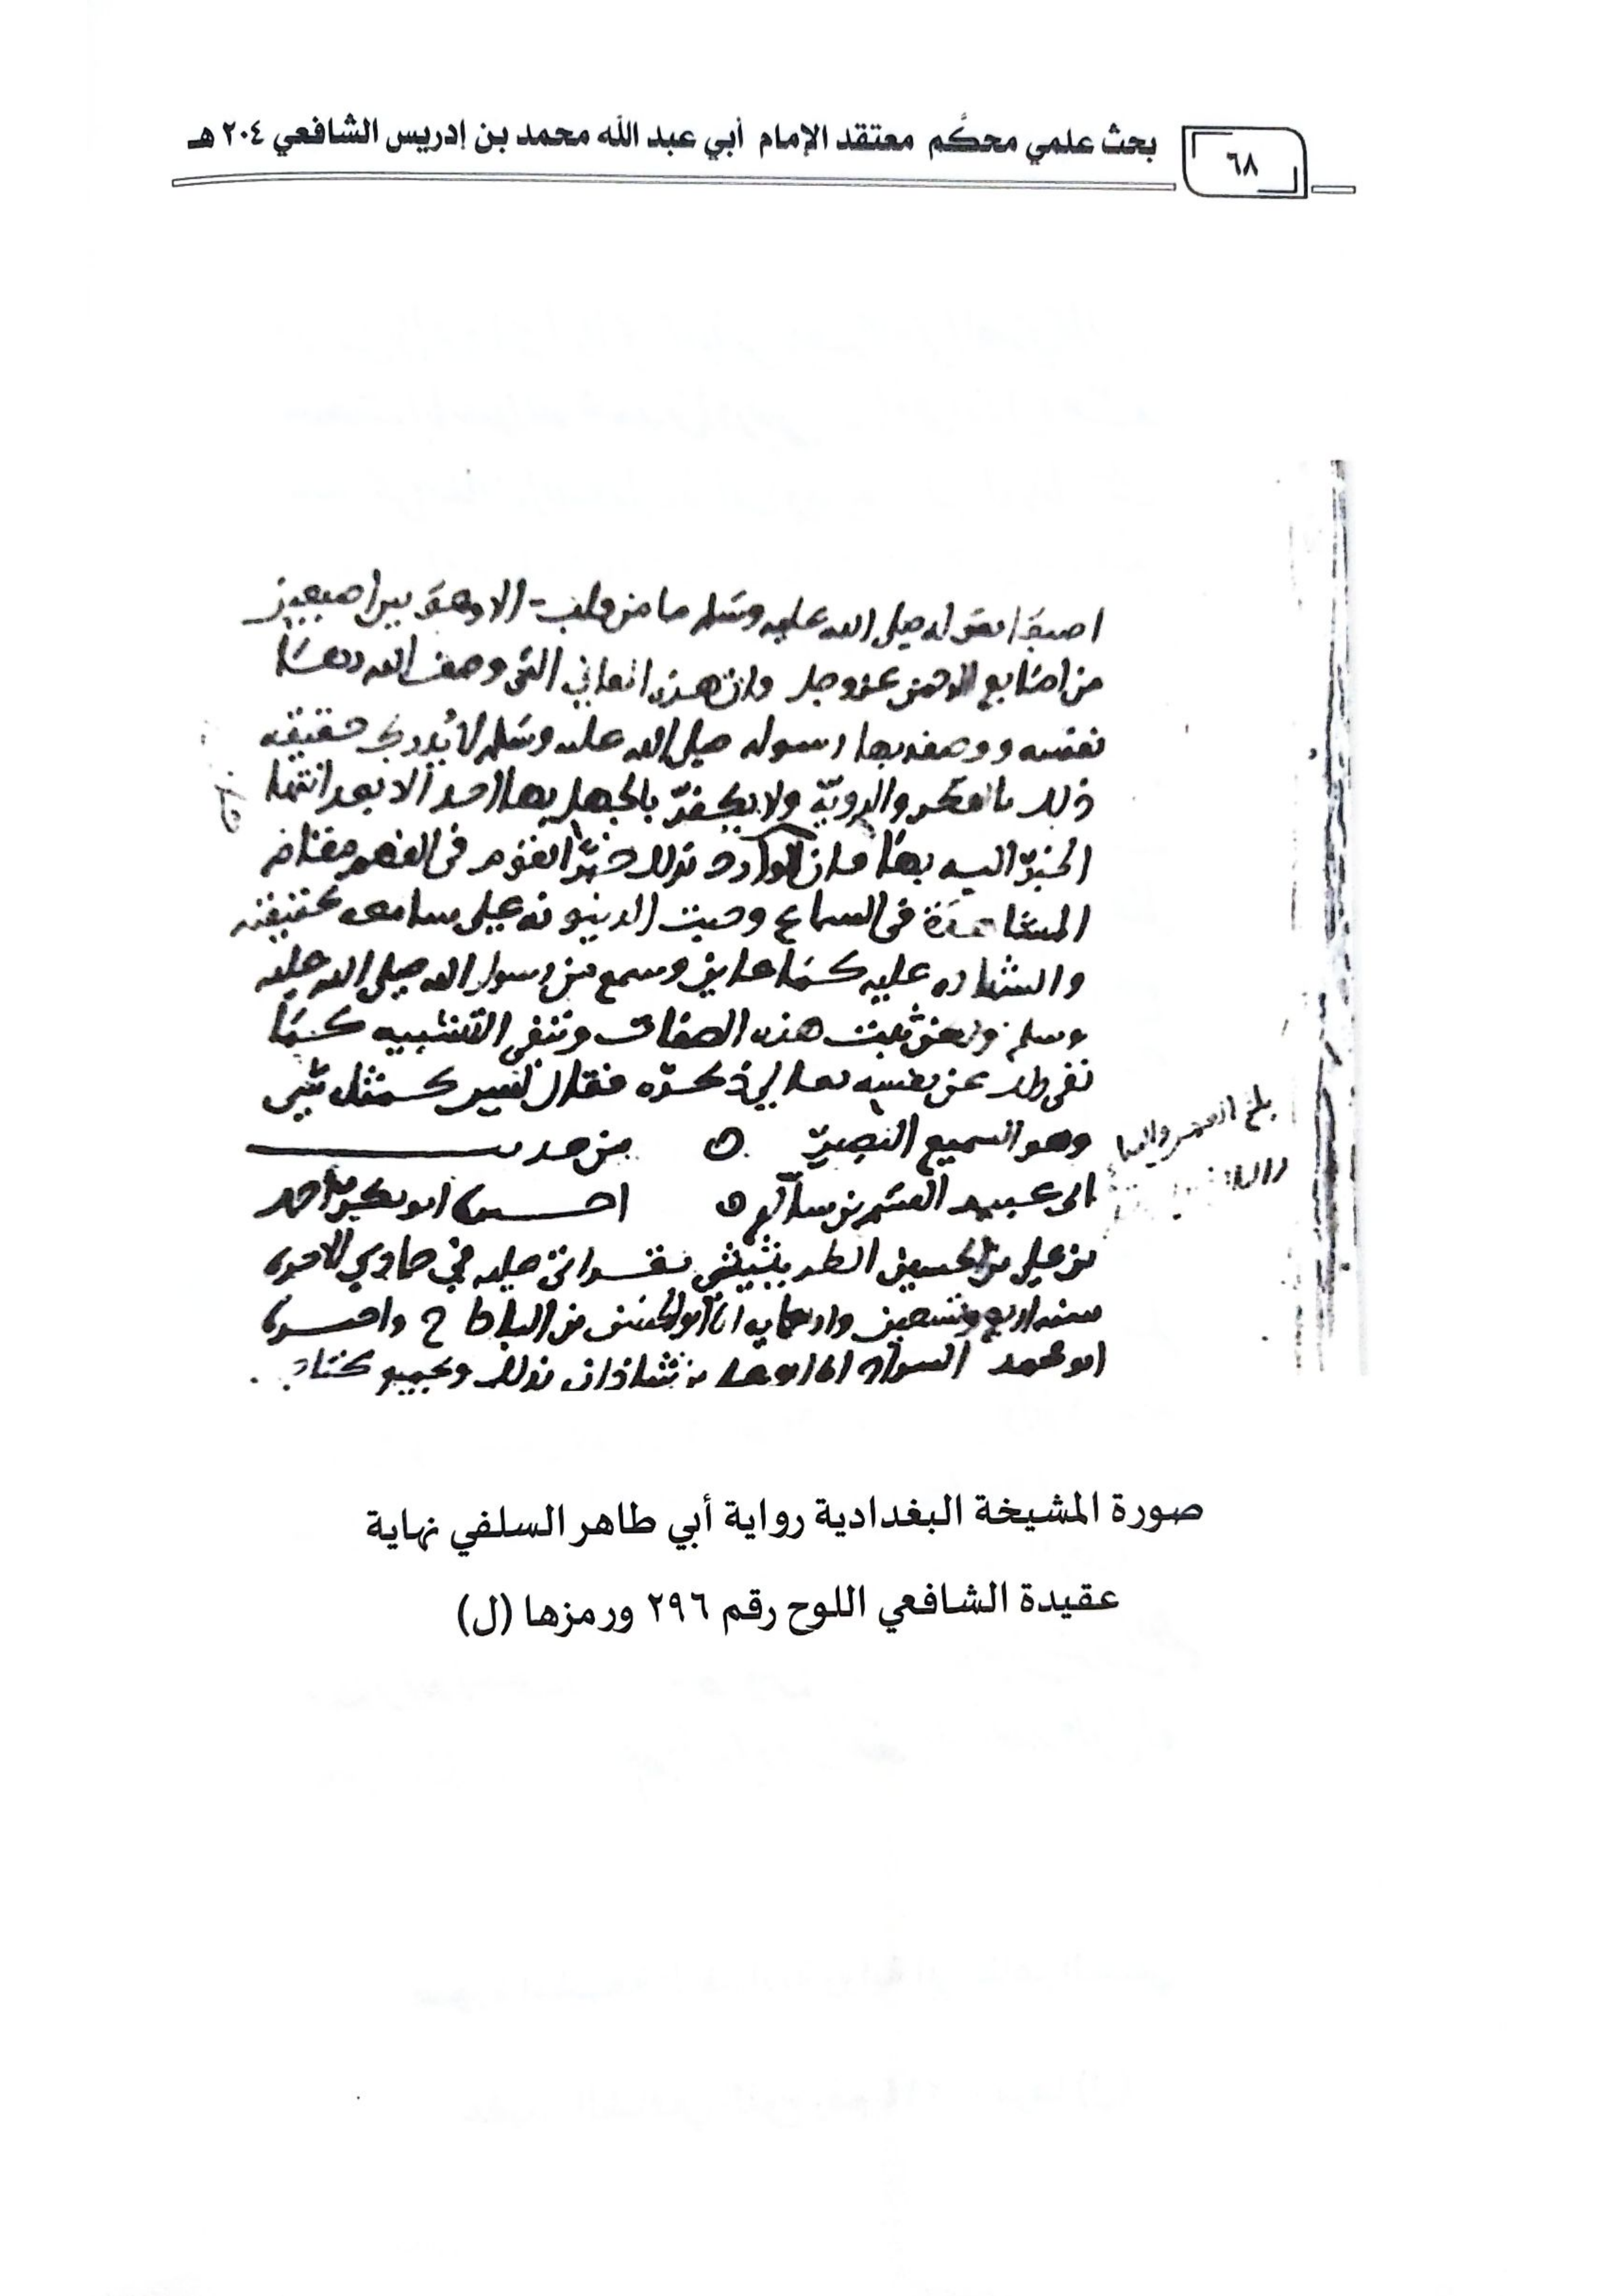 ٦٨
بحث علمي محكَّم معتقد الإمام أبي عبد الله محمد بن إدريس الشافعي ٢٠٤ هـ
اصبعا بقوله صلى الله عليه وسلم ما من قلب الا وهو بين اصبعين
من اصابع الرحمن عز وجل وان هذه المعاني التي وصف الله بها
نفسه ووصفه بها رسوله صلى الله عليه وسلم لا يُدرك حقيقته
ذلك بالفكر والرويّة ولا يكفر بالجهل بها احد الا بعد انتها
الخبر اليه بها فان الوارد بذلك خبرًا يقوم في الفهم مقام
المشاهدة في السماع وجبت الدينونه على سامعه بحقيقته
والشهاده عليه كما عاين وسمع من رسول الله صلى الله عليه
وسلم ونحن نثبت هذه الصفات وننفي التشبيه كما
نفى ذلك عن نفسه تعالى ذكره فقال ليس كمثله شي
وهو السميع البصير من حديث
ابي عبيد القسم بن سلام اخبرنا ابو بكر احمد
بن علي بن الحسين الطريثيثي بقراتي عليه في جمادي الاخره
سنه اربع وتسعين واربعمايه انا ابو الحسن بن الباداح واخبرنا
ابو محمد السراج انا ابو علي بن شاذان بذلك وبجميع كتاب
بلغ
صورة المشيخة البغدادية رواية أبي طاهر السلفي نهاية
عقيدة الشافعي اللوح رقم ٢٩٦ ورمزها (ل)